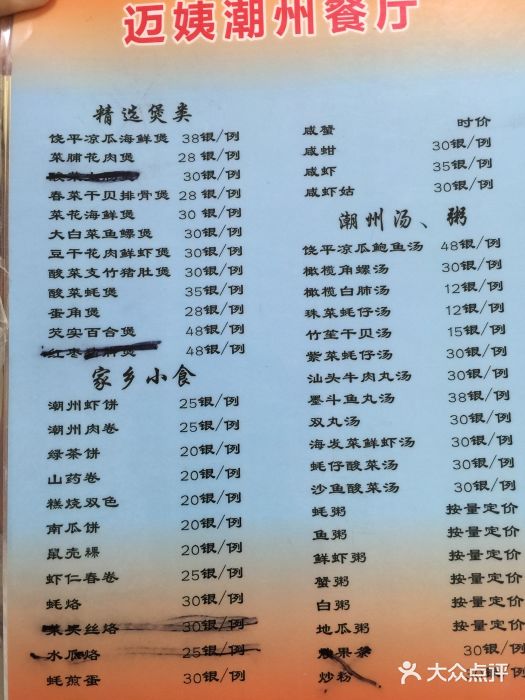 迈姨潮州餐厅
精选煲类
饶平凉瓜海鲜煲 38银/例
菜脯花肉煲 28银/例
30银/例
春菜干贝排骨煲 28银/例
菜花海鲜煲 30银/例
大白菜鱼鳔煲 30银/例
豆干花肉鲜虾煲 30银/例
酸菜支竹猪肚煲 30银/例
酸菜蚝煲 35银/例
蛋角煲 28银/例
芡实百合煲 48银/例
红枣煲 48银/例
家乡小食
潮州虾饼 25银/例
潮州肉卷 25银/例
绿茶饼 20银/例
山药卷 20银/例
糕烧双色 20银/例
南瓜饼 20银/例
鼠壳粿 20银/例
虾仁春卷 25银/例
蚝烙 30银/例
菜头丝烙 30银/例
水瓜烙 25银/例
蚝煎蛋 30银/例
咸蟹 时价
咸蚶 30银/例
咸虾 35银/例
咸虾姑 30银/例
潮州汤、粥
饶平凉瓜鲍鱼汤 48银/例
橄榄角螺汤 30银/例
橄榄白肺汤 12银/例
珠菜蚝仔汤 12银/例
竹笙干贝汤 15银/例
紫菜蚝仔汤 30银/例
汕头牛肉丸汤 30银/例
墨斗鱼丸汤 38银/例
双丸汤 30银/例
海发菜鲜虾汤 30银/例
蚝仔酸菜汤 30银/例
沙鱼酸菜汤 30银/例
蚝粥 按量定价
鱼粥 按量定价
鲜虾粥 按量定价
蟹粥 按量定价
白粥 按量定价
地瓜粥 按量定价
果条 30银/例
炒粉 30银/例
大众点评